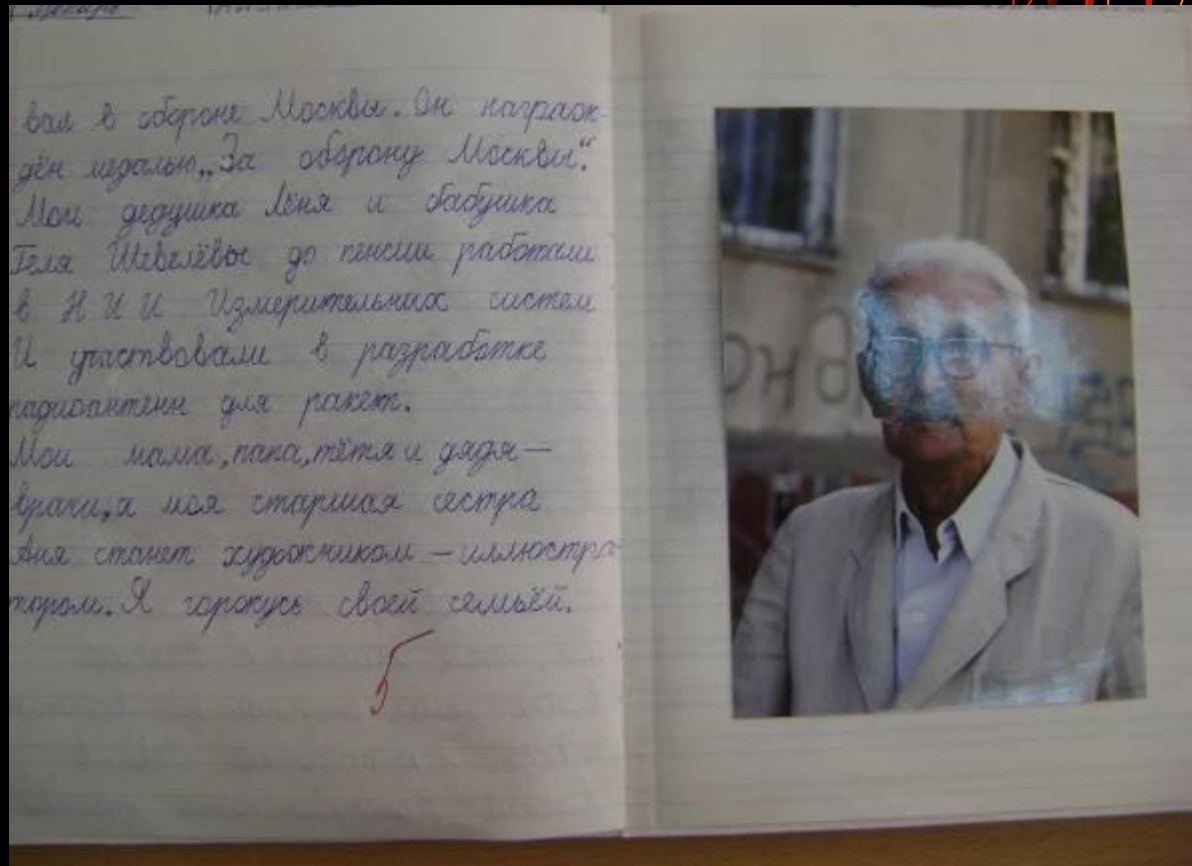 вал в обороне Москвы. Он награж-
дён медалью „За оборону Москвы“.
Мои дедушка Лёня и бабушка
Геля Шевелёвы до пенсии работали
в Н И И Измерительных систем
И участвовали в разработке
радиоантенн для ракет.
Мои мама, папа, тётя и дядя —
врачи, а моя старшая сестра
Аня станет художником — иллюстра
тором. Я горжусь своей семьёй.
5
он